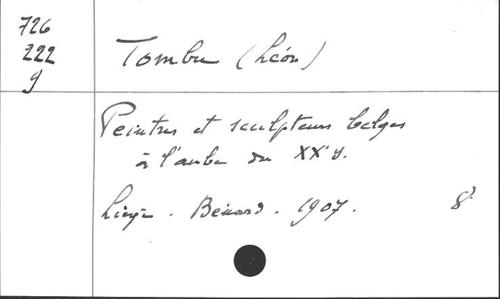 726
222
g
Tombu (Léon)
Peintres et sculpteurs belges
à l'aube du XXe s.
Liège. Bénard. 1907. 8°